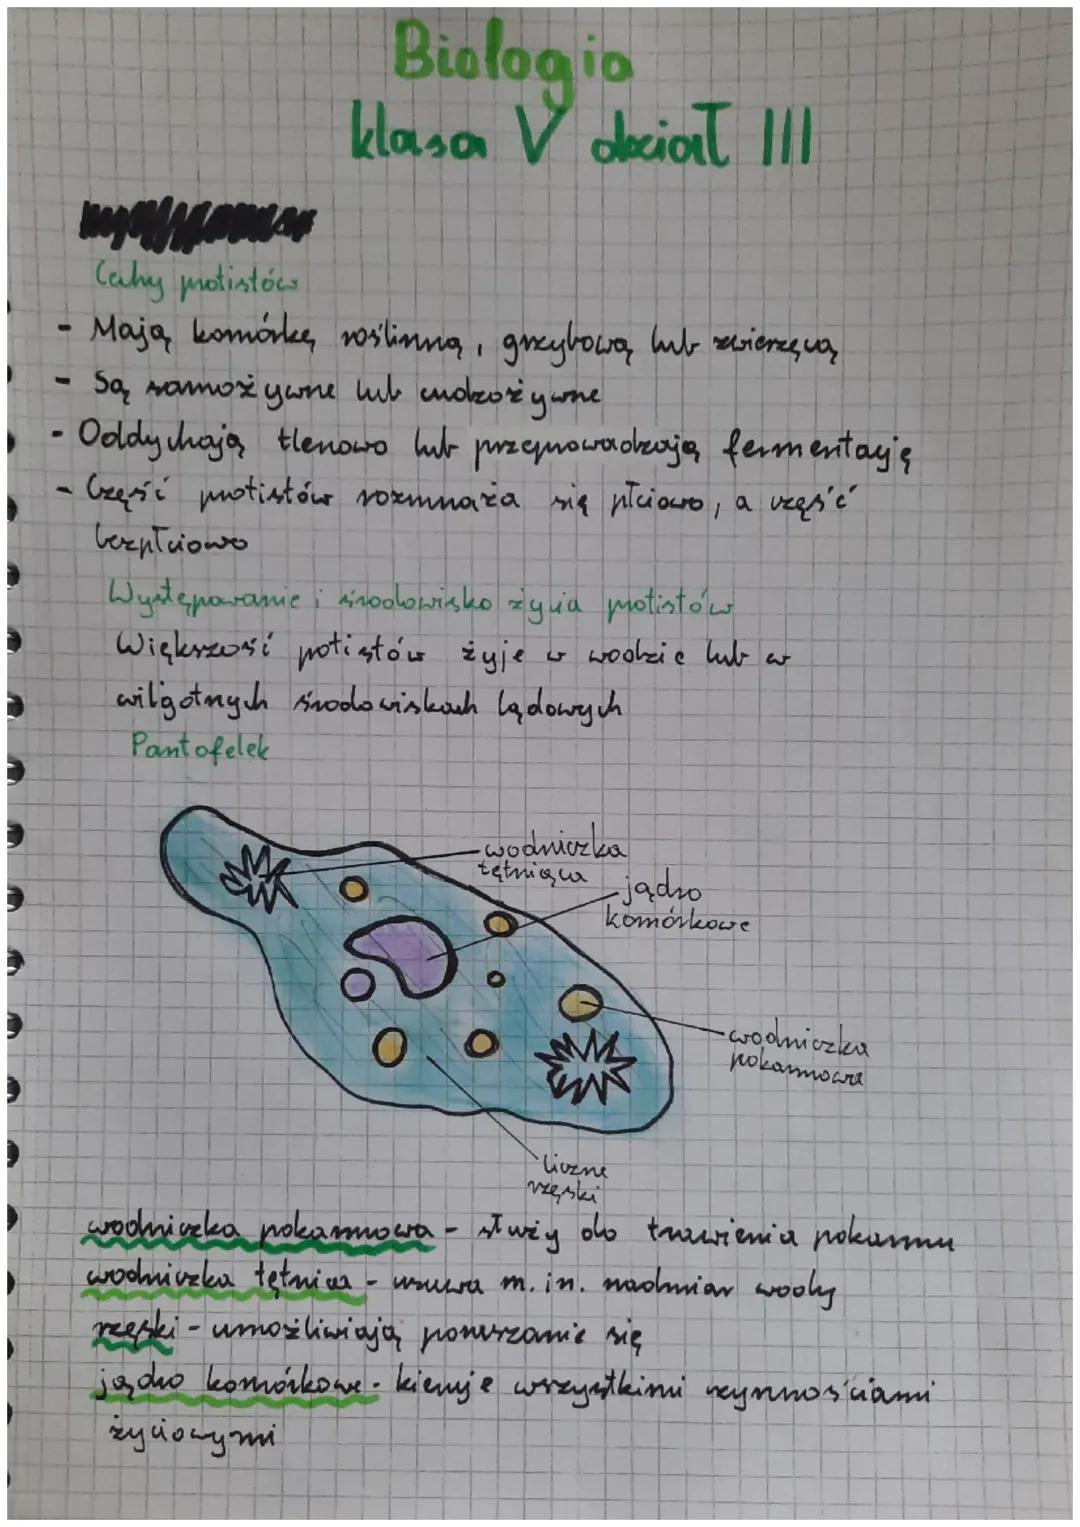 Biologia
klasa V dział III
Cechy protistów
- Mają komórkę roślinną, grzybową lub zwierzęcą
- Są samożywne lub cudzożywne
- Oddychają tlenowo lub przeprowadzają fermentację
- Część protistów rozmnaża się płciowo, a część
bezpłciowo
Występowanie i środowisko życia protistów
Większość potistów żyje w wodzie lub w
wilgotnych środowiskach lądowych
Pantofelek
wodniczka
tętniąca
jądro
komórkowe
wodniczka
pokarmowa
liczne
rzęski
wodniczka pokarmowa - służy do trawienia pokarmu
wodniczka tętnica - usuwa m.in. nadmiar wody
rzęski - umożliwiają poruszanie się
jądro komórkowe - kieruje wszystkimi czynnościami
życiowymi